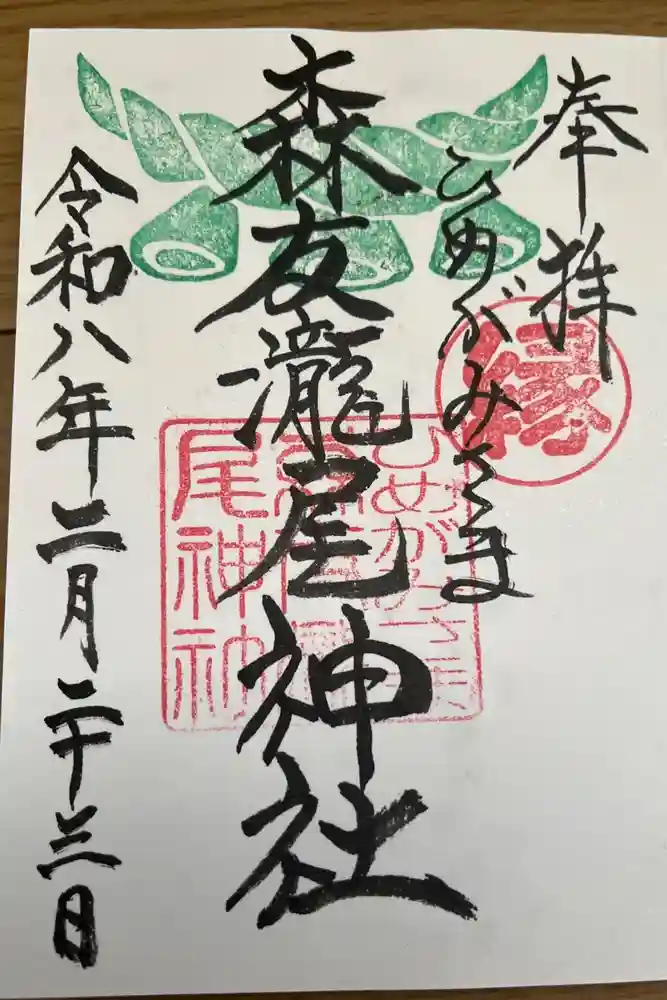 奉拝
縁
ひめがみさま
森友瀧尾神社
尾神社
令和八年二月二十三日